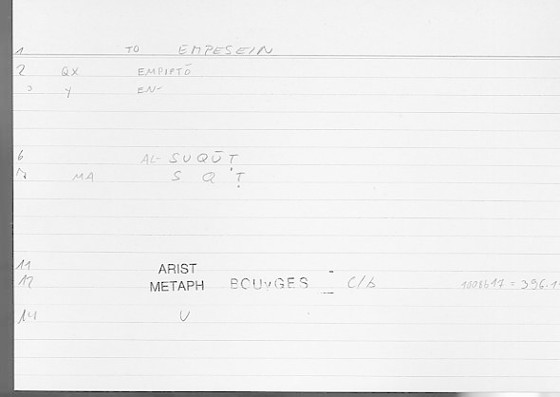 1 TO EMPESEIN
2 QX EMPIPTŌ
3 Y EN-
6 AL-SUQŪṬ
7 MA S Q Ṭ
11 ARIST
12 METAPH BOUYGES - C/b 1008b17 = 396.1
14 V